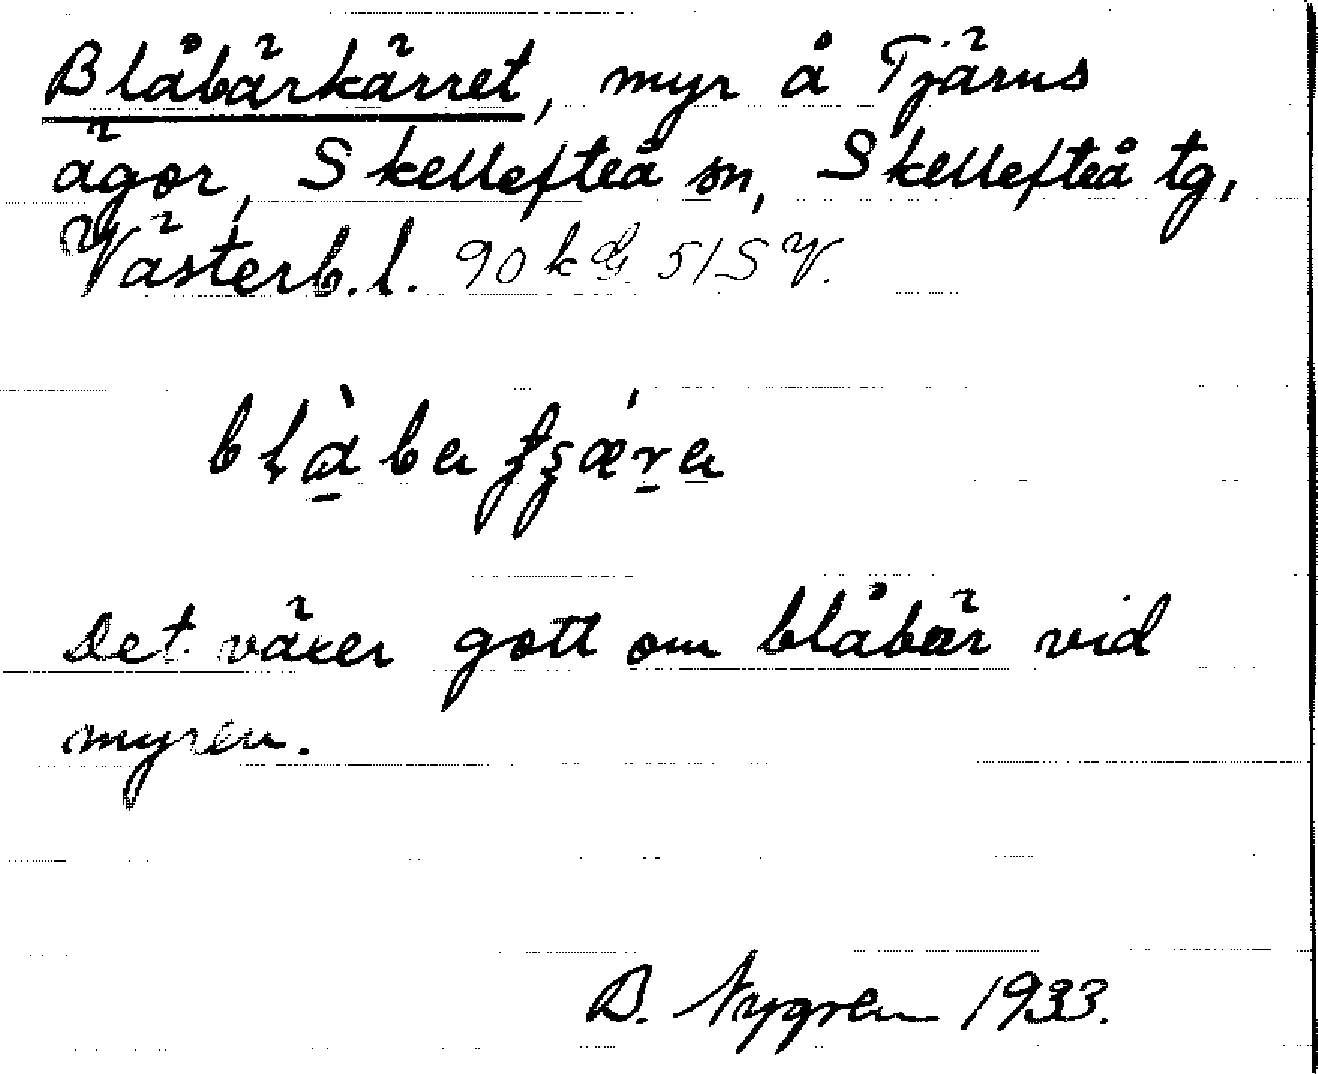 Blåbärkärret, myr å Tjärns
ägor, Skellefteå sn, Skellefteå tg,
Västerb. l. 90 k 51SV.
Det växer gott om blåbär vid
myren.
B. Nygren 1933.